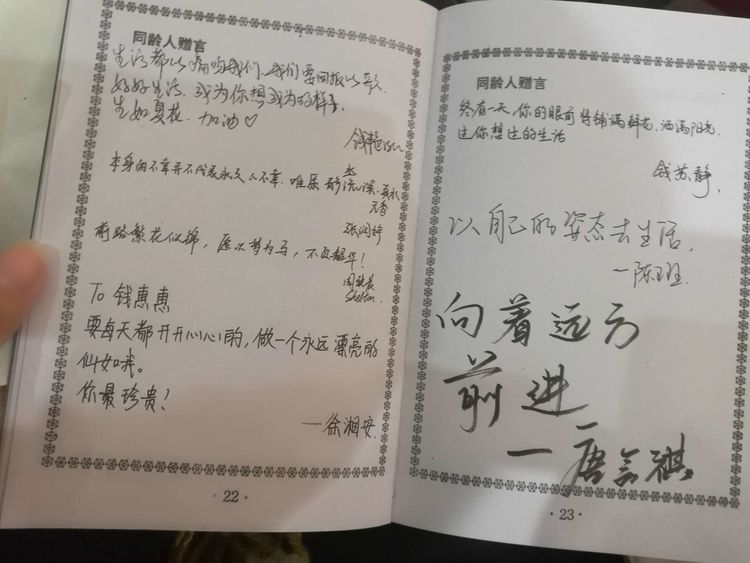 同龄人赠言
生活都以痛吻我们，我们要回报以歌
好好生活，成为你想成为的样子
生如夏花，加油♡
本身的不幸并不代表永久的不幸，唯乐
前路繁花似锦，愿以梦为马，不负韶华！
Shelton
To 钱惠惠
要每天都开开心心的，做一个永远漂亮的
仙女哦。
你最珍贵！
——徐湘安
·22·
同龄人赠言
终有一天，你的眼前将铺满鲜花，洒满阳光
过你想过的生活
钱苏静
以自己的姿态去生活，
—陈班
向着远方
前进
—唐言祺
·23·